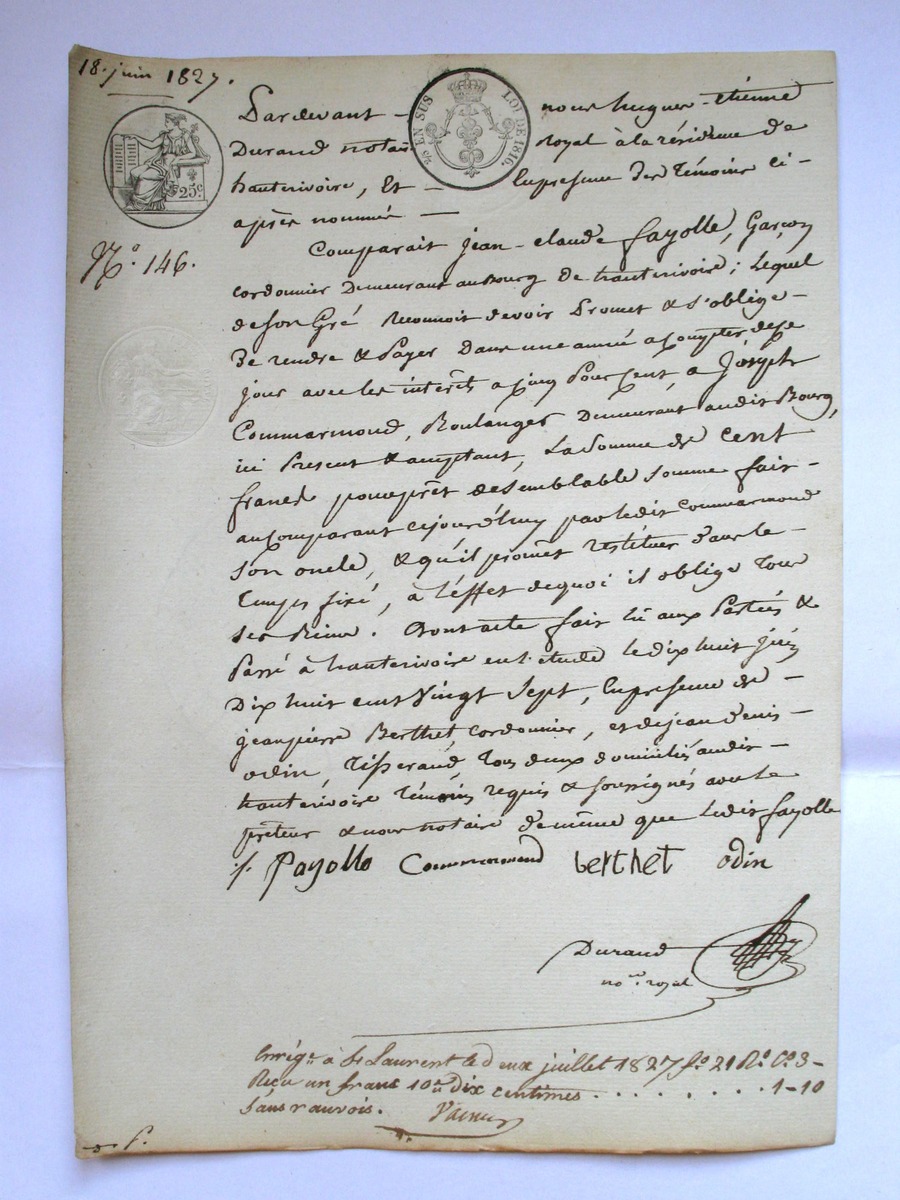 18. juin 1827.
Pardevant — nous hugues-étienne
EN SUS LOI DE 1816.
Durand notaire royal à la résidence de
25c.
hauterivoire, Et — En presence des témoins ci-
après nommés —
N.o 146.
Comparait jean-claude fayolle, Garçon
cordonnier Demeurant au Bourg de hauterivoire; Lequel
de son Gré Reconnoit devoir Promet & s'oblige-
De rendre & Payer Dans une année a compter de ce
jour avec les interêts a cinq Pour Cent, a Joseph
Commarmond, Boulanger Demeurant audit Bourg,
ici Present & acceptant, La Somme de Cent
francs pour prêt de semblable somme fait-
au Comparant cejourd'huy par ledit Commarmond
son oncle, & qu'il promet restituer dans le-
temps fixé, à l'effet de quoi il oblige Tous
ses Biens. Dont acte fait lu aux Parties &
Passé à hauterivoire en l'étude le dix huit juin
Dix huit cent Vingt Sept, En presence de-
jean pierre Berthet, cordonnier, et de jean denis-
odin, Tisserand, Tous deux domiciliés audit-
hauterivoire Témoins requis & soussignés avec le
prêteur & nous notaire de même que Ledit fayolle
f. Payolle Commarmond berthet odin
Durand
no.re royal
Enrég. à St Laurent le deux juillet 1827 fo. 21 Ro. Co. 3-
Reçu un franc 10.e Dix centimes ........ 1-10
Sans renvois.